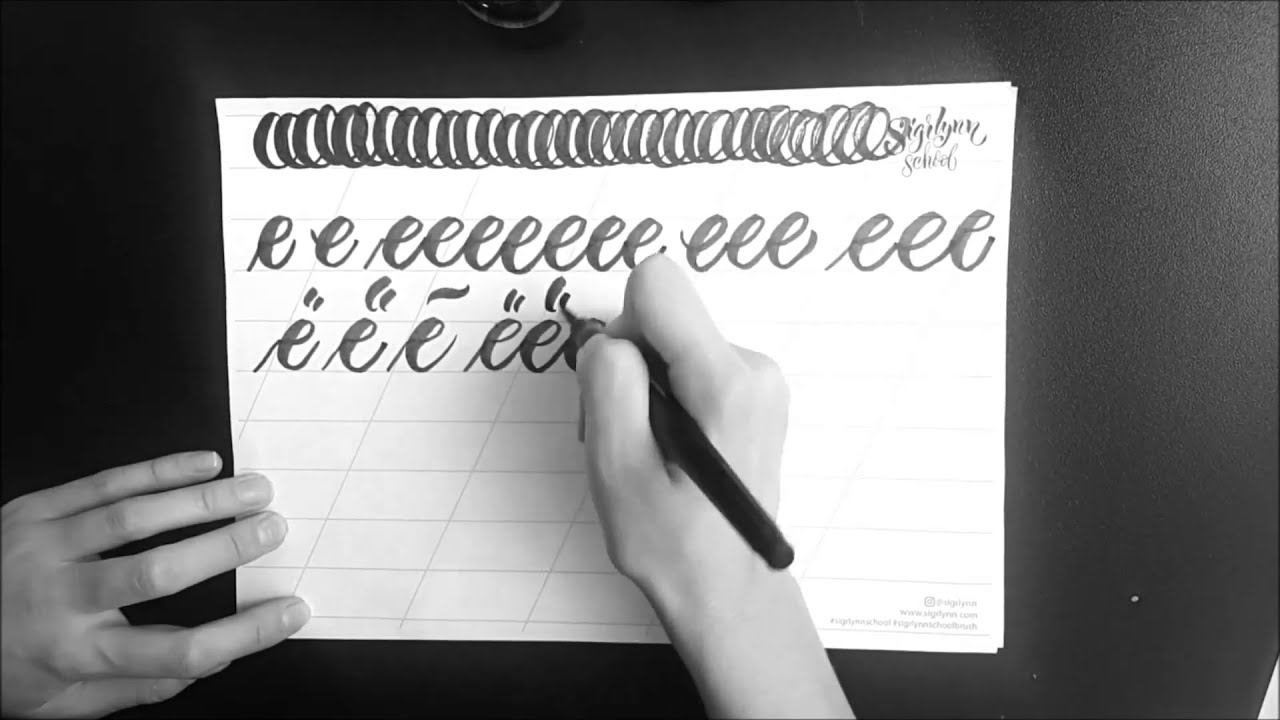 Sigrlynn
school
e e eeeeeee eee eee
ё ё ẽ ёёe
@sigrlynn
www.sigrlynn.com
#sigrlynnschool #sigrlynnschoolbrush